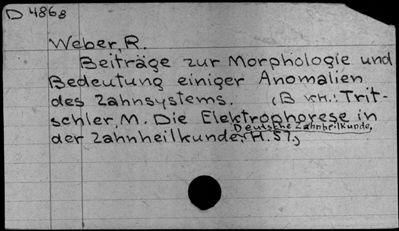 D 4868
Weber, R.
Beiträge zur Morphologie und
Bedeutung einiger Anomalien
des Zahnsystems. (B Trit-
schler, M. Die Elektrophorese in
Deutsche Zahnheilkunde,
der Zahnheilkunde, H. 57,)